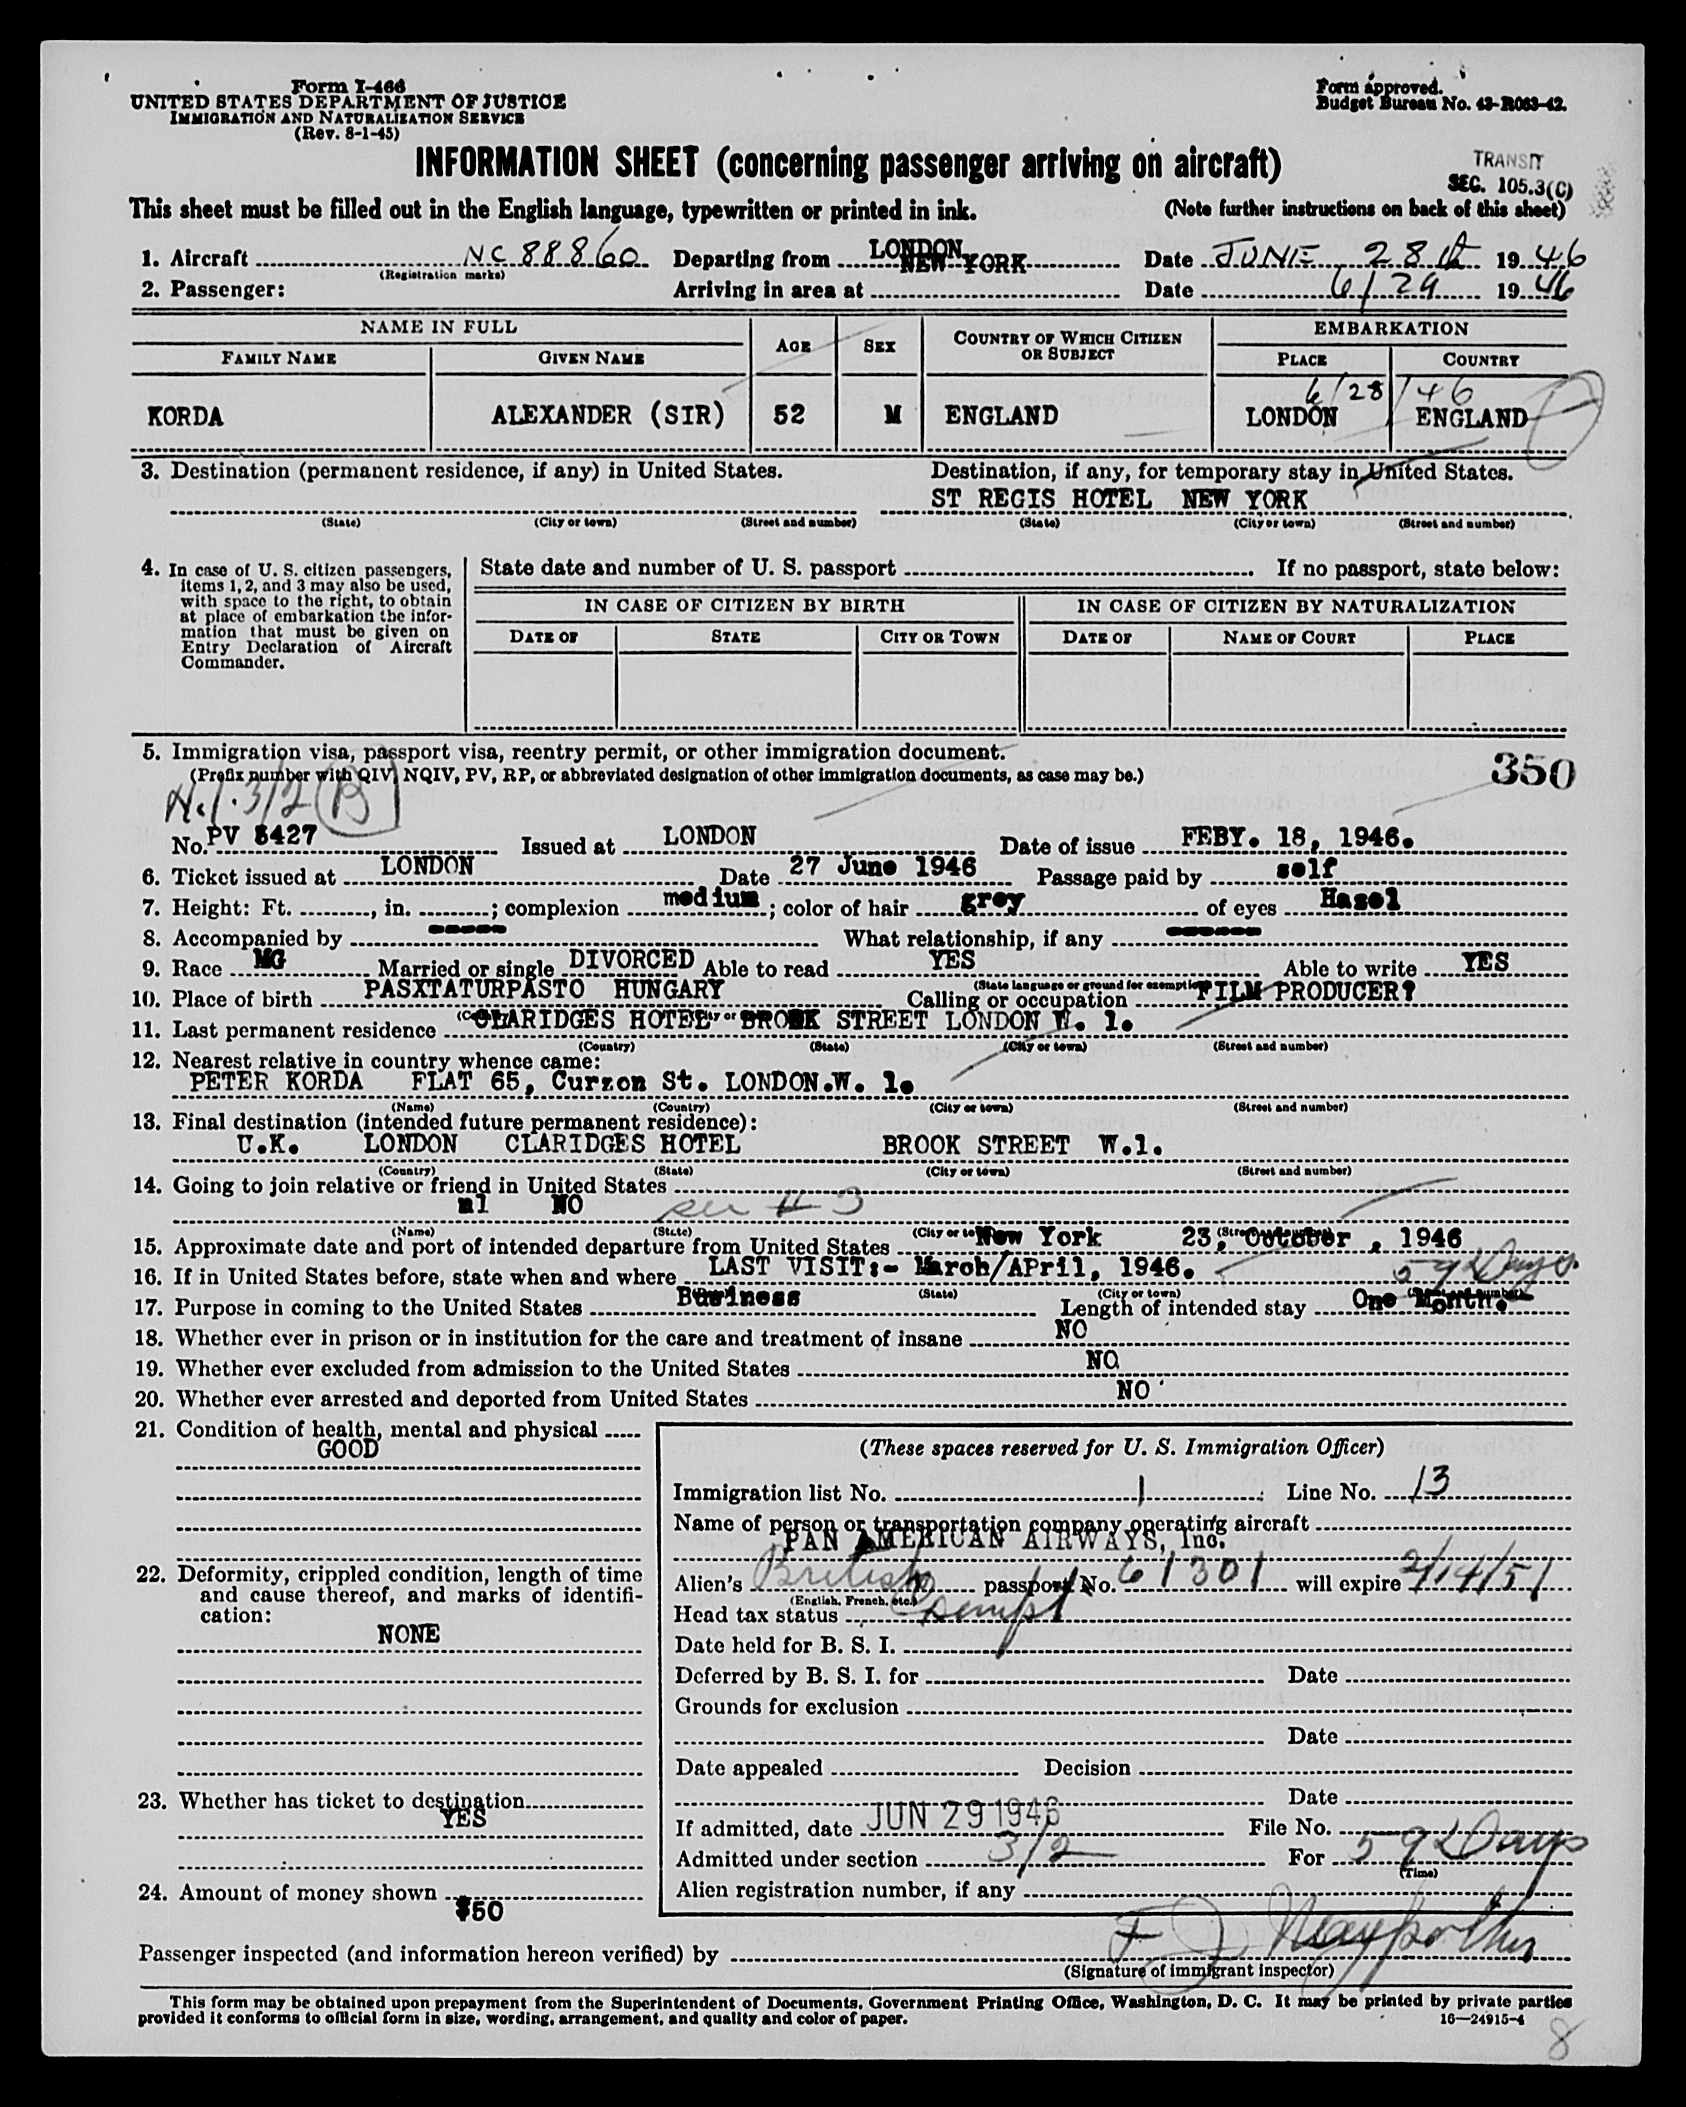 Form I-466
UNITED STATES DEPARTMENT OF JUSTICE
IMMIGRATION AND NATURALIZATION SERVICE
(Rev. 8-1-45)
Form approved.
Budget Bureau No. 43-R063-42.
INFORMATION SHEET (concerning passenger arriving on aircraft)
TRANSIT
SEC. 105.3(C)
This sheet must be filled out in the English language, typewritten or printed in ink. (Note further instructions on back of this sheet)
1. Aircraft NC 88860 Departing from LONDON NEW YORK Date JUNE 28th 1946
(Registration marks)
2. Passenger: Arriving in area at Date 6/29 1946
NAME IN FULL AGE SEX COUNTRY OF WHICH CITIZEN OR SUBJECT EMBARKATION
FAMILY NAME GIVEN NAME PLACE COUNTRY
6/28/46
KORDA ALEXANDER (SIR) 52 M ENGLAND LONDON ENGLAND
3. Destination (permanent residence, if any) in United States. Destination, if any, for temporary stay in United States.
ST REGIS HOTEL NEW YORK
(State) (City or town) (Street and number) (State) (City or town) (Street and number)
4. In case of U. S. citizen passengers, items 1, 2, and 3 may also be used, with space to the right, to obtain at place of embarkation the information that must be given on Entry Declaration of Aircraft Commander.
State date and number of U. S. passport If no passport, state below:
IN CASE OF CITIZEN BY BIRTH IN CASE OF CITIZEN BY NATURALIZATION
DATE OF STATE CITY OR TOWN DATE OF NAME OF COURT PLACE
5. Immigration visa, passport visa, reentry permit, or other immigration document.
350
(Prefix number with QIV, NQIV, PV, RP, or abbreviated designation of other immigration documents, as case may be.)
3/2 (B)
No. PV 8427 Issued at LONDON Date of issue FEBY. 18, 1946.
6. Ticket issued at LONDON Date 27 June 1946 Passage paid by self
7. Height: Ft. , in. ; complexion medium ; color of hair grey of eyes Hazel
8. Accompanied by ----- What relationship, if any ------
9. Race MG Married or single DIVORCED Able to read YES Able to write YES
(State language or ground for exemption)
10. Place of birth PASXTATURPASTO HUNGARY Calling or occupation FILM PRODUCER?
11. Last permanent residence CLARIDGES HOTEL BROOK STREET LONDON W. 1.
(Country) (State) (City or town) (Street and number)
12. Nearest relative in country whence came:
PETER KORDA FLAT 65, Curzon St. LONDON.W. 1.
(Name) (Country) (City or town) (Street and number)
13. Final destination (intended future permanent residence):
U.K. LONDON CLARIDGES HOTEL BROOK STREET W.1.
(Country) (State) (City or town) (Street and number)
14. Going to join relative or friend in United States
nl NO see # 3
(Name) (State) (City or town) (Street and number)
15. Approximate date and port of intended departure from United States New York 23, October , 1946
16. If in United States before, state when and where LAST VISIT:- March/APril, 1946. 59 Days.
(State) (City or town)
17. Purpose in coming to the United States Business Length of intended stay One Month.
18. Whether ever in prison or in institution for the care and treatment of insane NO
19. Whether ever excluded from admission to the United States NO
20. Whether ever arrested and deported from United States NO
21. Condition of health, mental and physical
GOOD
22. Deformity, crippled condition, length of time and cause thereof, and marks of identification:
NONE
23. Whether has ticket to destination
YES
24. Amount of money shown
$50
(These spaces reserved for U. S. Immigration Officer)
Immigration list No. 1 Line No. 13
Name of person or transportation company operating aircraft
PAN AMERICAN AIRWAYS, Inc.
Alien's British passport No. 61301 will expire 2/14/51
(English, French, etc.)
Head tax status Exempt
Date held for B. S. I.
Deferred by B. S. I. for Date
Grounds for exclusion
Date
Date appealed Decision
Date
If admitted, date JUN 29 1946 File No.
Admitted under section 3/2 For 59 Days
(Time)
Alien registration number, if any
Passenger inspected (and information hereon verified) by F J
(Signature of immigrant inspector)
This form may be obtained upon prepayment from the Superintendent of Documents, Government Printing Office, Washington, D. C. It may be printed by private parties
provided it conforms to official form in size, wording, arrangement, and quality and color of paper. 16—24915-4
8